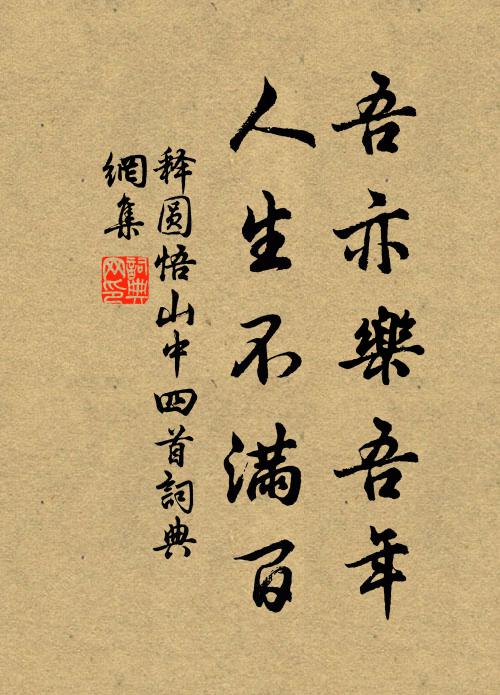 吾亦樂吾年
人生不滿百
释圆悟山中四首詞典
網集
詞典網印